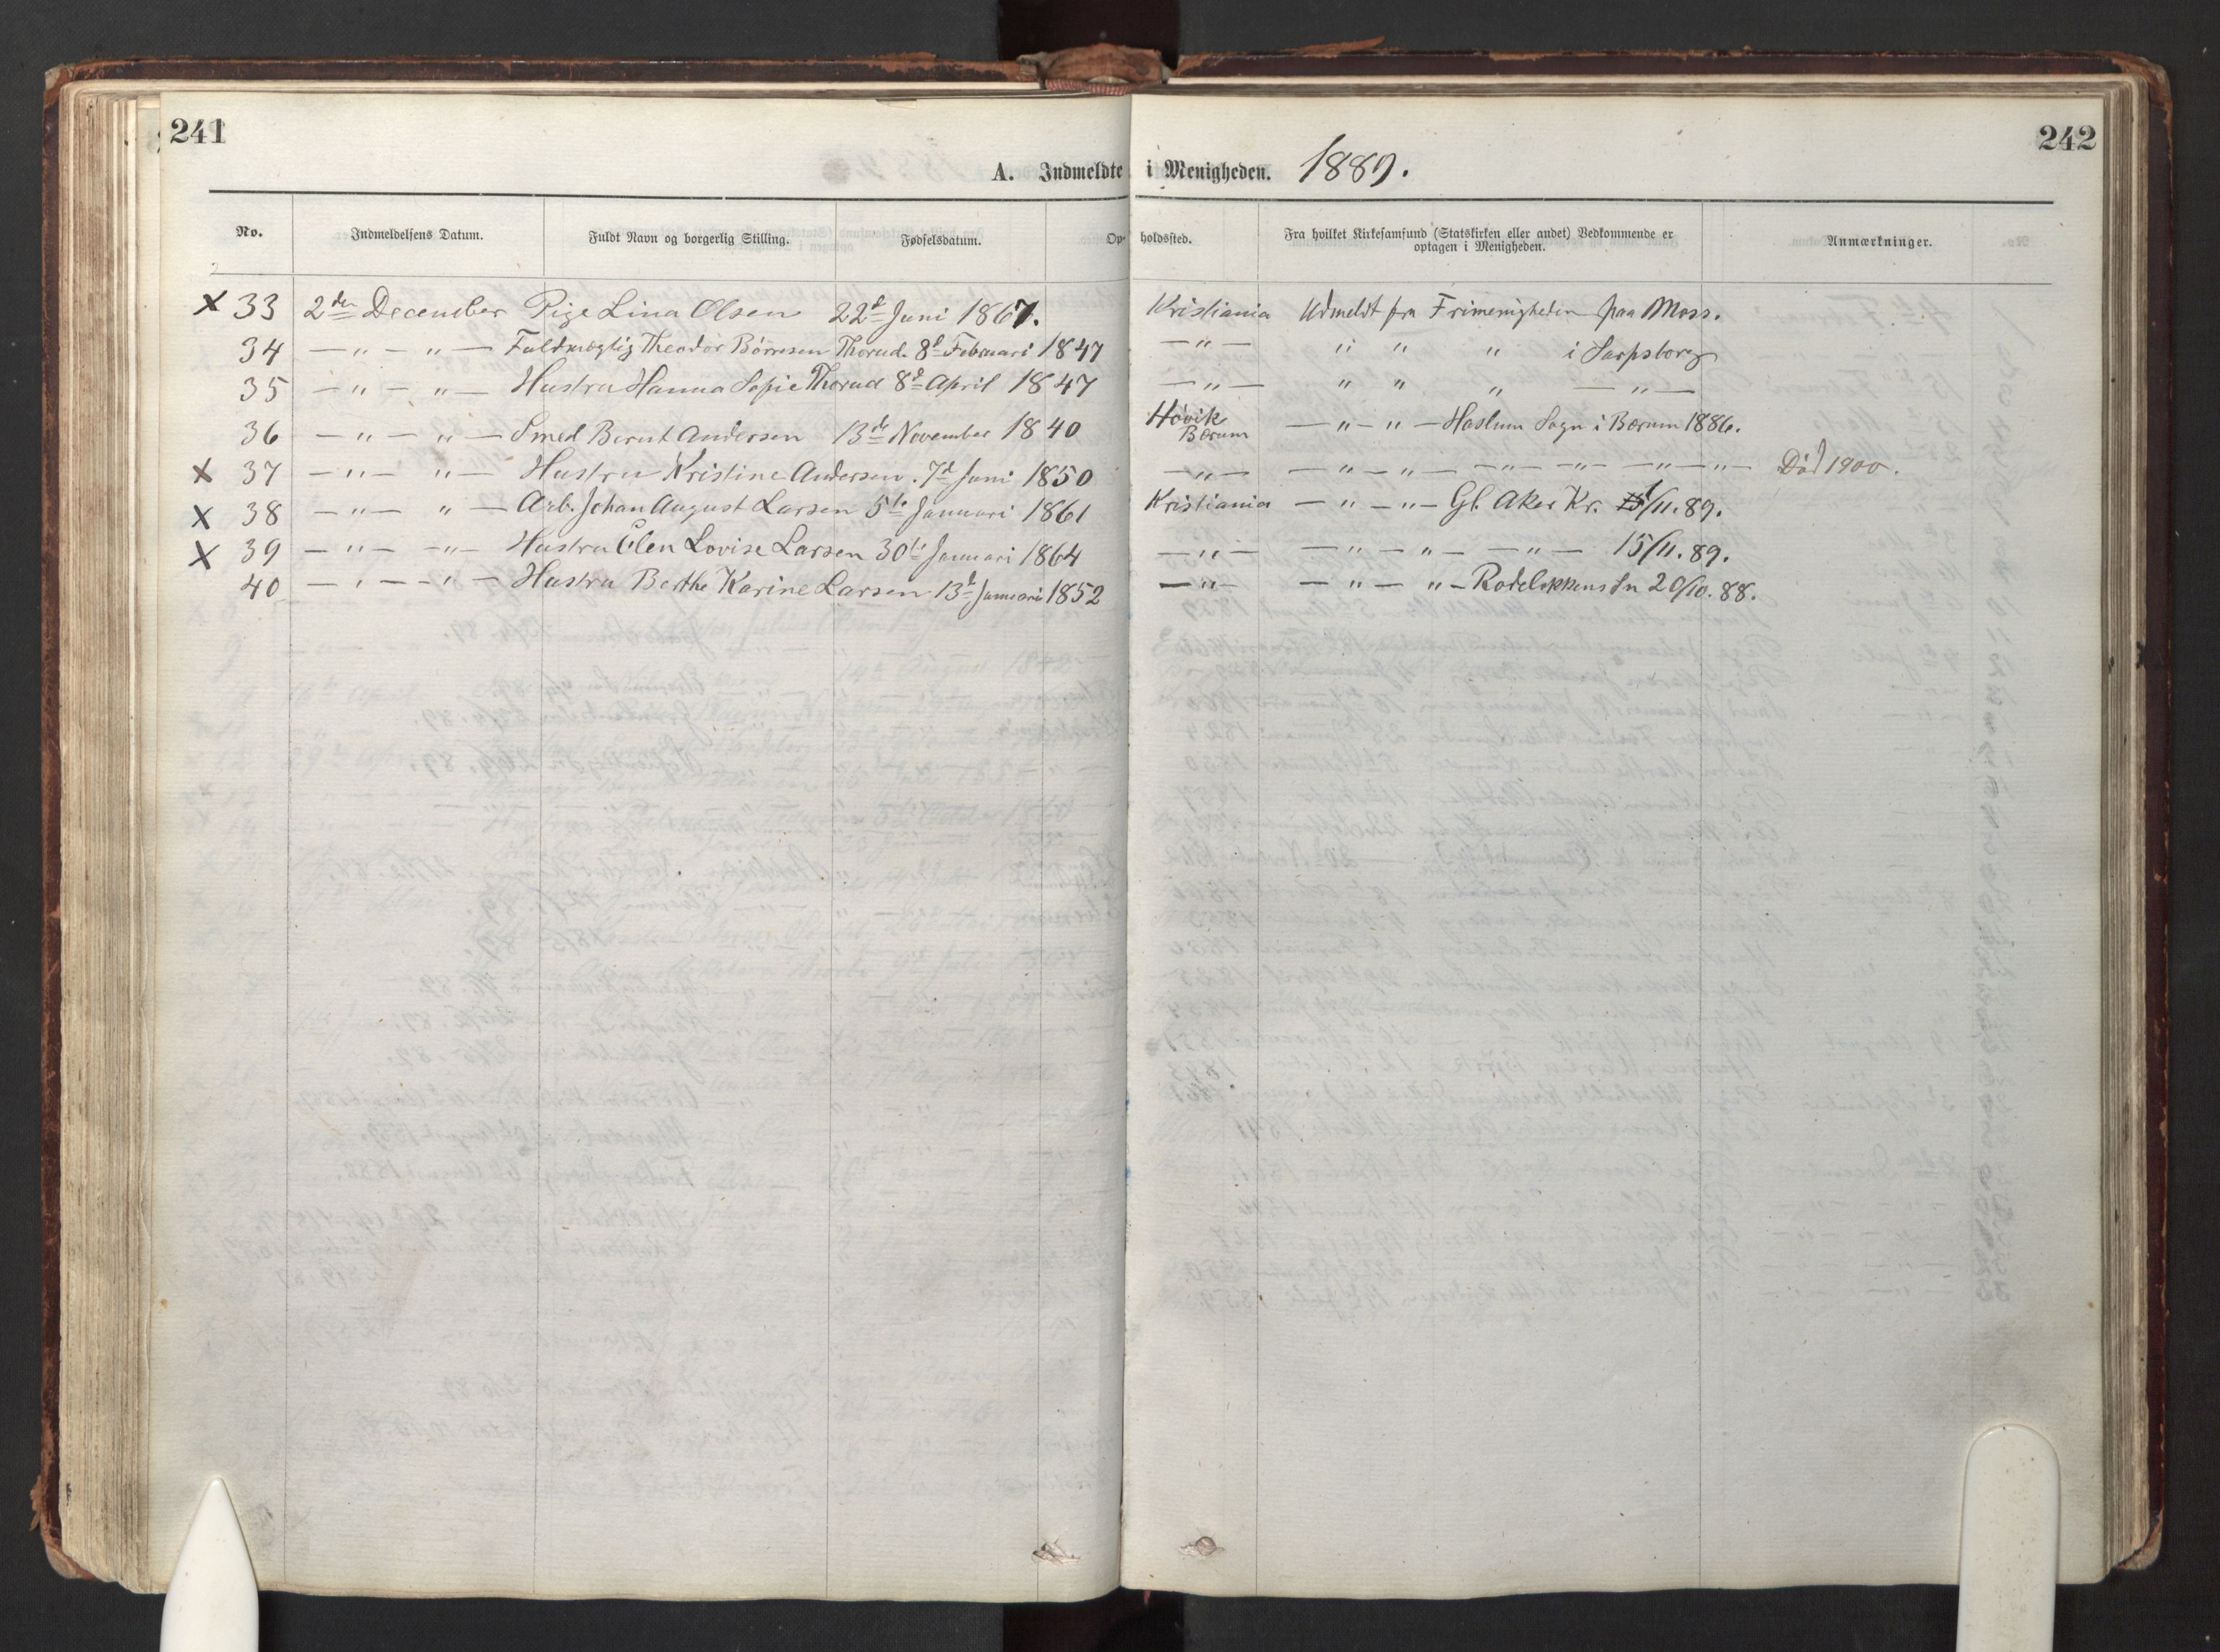 241
242
A. Indmeldte i Menigheden. 1889.
No. Indmeldelsens Datum. Fuldt Navn og borgerlig Stilling. Fødselsdatum. Op- holdssted. Fra hvilket Kirkesamfund (Statskirken eller andet) Vedkommende er optagen i Menigheden. Anmærkninger.
X 33 2den December Pige Lina Olsen 22d Juni 1867. Kristiania Udmeldt fra Frimenigheden paa Moss.
34 — " — " — Fuldmægtig Theodor Børresen Thorud. 8d Februari 1847 — " — " " " i Sarpsborg
35 — " — " — Hustru Hanna Sofie Thorud 8d April 1847 — " — " " " — " —
36 — " — " — Smed Bernt Andersen 13de November 1840 Høvik Bærum — " — " — Haslum Sogn i Bærum 1886.
X 37 — " — " — Hustru Kristine Andersen. 7d Juni 1850 — " — — " — " — — " — — " — — " — " — Död 1900.
X 38 — " — " — Arb. Johan August Larsen 5te Januari 1861 Kristiania — " — " — Gl. Aker Kr. /11. 89.
X 39 — " — — " — Hustru Elen Lovise Larsen 30te Januari 1864 — " — — " — " — — " — 15/11. 89.
40 — " — — " — Hustru Berthe Karine Larsen 13d Januari 1852 — " — — " — " — Rodeløkkens Sn 20/10. 88.